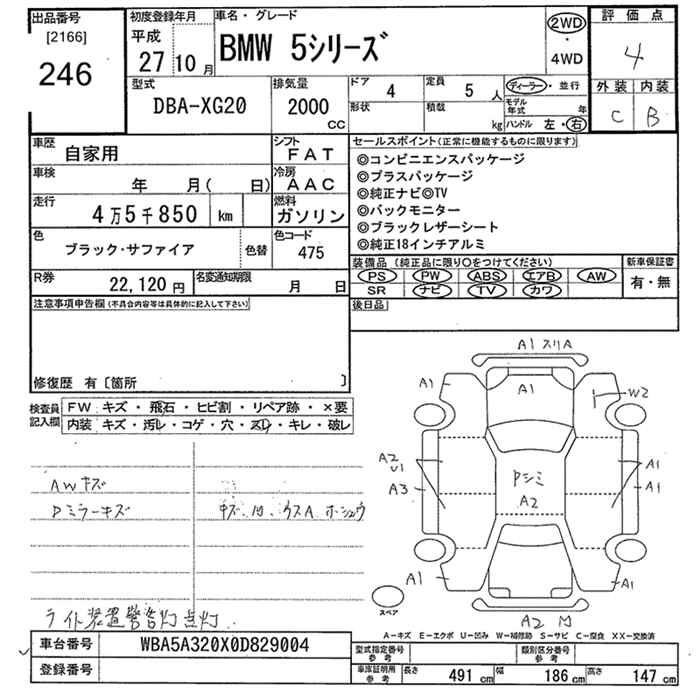 出品番号
[2166]
246
初度登録年月
平成
27 10月
車名・グレード
BMW 5シリーズ
2WD
・
4WD
評価点
4
外装 内装
C B
型式
DBA-XG20
排気量
2000
CC
ドア
4
定員
5人
形状
積載
kg
ディーラー・並行
モデル年式 年
ハンドル 左・右
車歴
自家用
シフト
FAT
車検
年 月( 日)
冷房
AAC
走行
4万5千850 km
燃料
ガソリン
色
ブラック・サファイア
色替
色コード
475
R券
22,120 円
名変通知期限
月 日
セールスポイント(正常に機能するものに限ります)
◎コンビニエンスパッケージ
◎プラスパッケージ
◎純正ナビ◎TV
◎バックモニター
◎ブラックレザーシート
◎純正18インチアルミ
装備品(純正品に限り○をつけてください)
PS PW ABS エアB AW
SR ナビ TV カワ
新車保証書
有・無
後日品
注意事項申告欄(不具合内容等は具体的に記入して下さい)
修復歴 有〔箇所 〕
検査員
記入欄
FW キズ・飛石・ヒビ割・リペア跡・×要
内装 キズ・汚レ・コゲ・穴・スレ・キレ・破レ
AWキズ
Pミラーキズ
ライト装置警告灯点灯
A1 スリA
A1
A1
W2
A2
U1
A3
Pシミ
A2
A1
A1
A1
A1
A2
スペア
A-キズ E-エクボ U-凹み W-補修跡 S-サビ C-腐食 XX-交換済
車台番号
WBA5A320X0D829004
登録番号
型式指定番号
参考
類別区分番号
参考
車庫証明用
参考
長さ 491 cm 幅 186 cm 高さ 147 cm